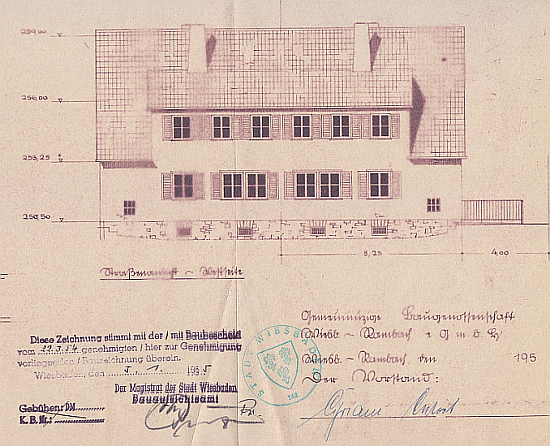 259,00
256,00
253,25
250,50
8,25
4,00
Straßenansicht - Westseite
Gemeinnützige Baugenossenschaft
Wiesb.-Rambach e G m b H
Wiesb.-Rambach den 195
Der Vorstand:
Diese Zeichnung stimmt mit der / mit Baubescheid
vom 22.9.54 genehmigten / hier zur Genehmigung
vorliegenden / Bauzeichnung überein.
Wiesbaden, den 5. 1. 1955
Der Magistrat der Stadt Wiesbaden
Bauaufsichtsamt
Gebühren: DM
K.B. Nr.:
STADT WIESBADEN